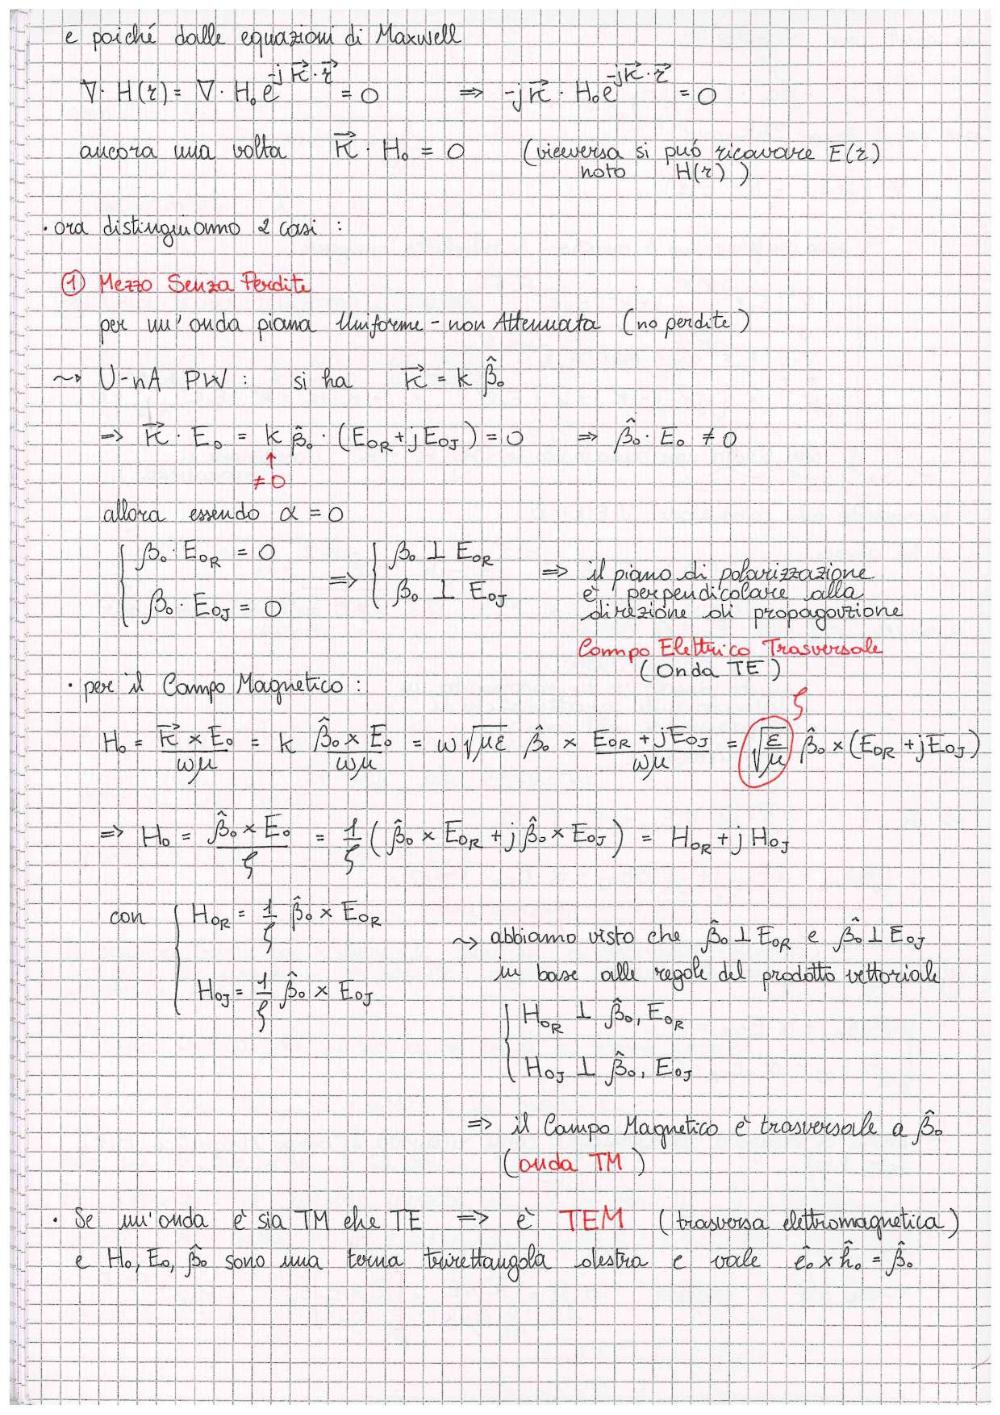 e poiché dalle equazioni di Maxwell
∇· H(r) = ∇· H₀ e^{-j k⃗·r⃗} = 0 ⇒ -j k⃗ · H₀ e^{-j k⃗·r⃗} = 0
ancora una volta k⃗ · H₀ = 0 (viceversa si può ricavare E(r)
noto H(r) )
· ora distinguiamo 2 casi :
① Mezzo Senza Perdite
per un'onda piana Uniforme - non Attenuata (no perdite)
⤳ U-nA PW : si ha k⃗ = k β̂₀
⇒ k⃗ · E₀ = k β̂₀ · (E₀R + j E₀J) = 0 ⇒ β̂₀ · E₀ ≠ 0
↑
≠ 0
allora essendo α = 0
{ β₀ · E₀R = 0 ⇒ { β₀ ⊥ E₀R
β₀ · E₀J = 0 β₀ ⊥ E₀J
⇒ il piano di polarizzazione
é perpendicolare alla
direzione di propagazione
Campo Elettrico Trasversale
(Onda TE)
· per il Campo Magnetico :
ζ
H₀ = k⃗ × E₀ / ωμ = k β̂₀ × E₀ / ωμ = ω √με β̂₀ × E₀R + j E₀J / ωμ = √ε/μ β̂₀ × (E₀R + j E₀J)
⇒ H₀ = β̂₀ × E₀ / ζ = 1/ζ ( β̂₀ × E₀R + j β̂₀ × E₀J ) = H₀R + j H₀J
con { H₀R = 1/ζ β̂₀ × E₀R
H₀J = 1/ζ β̂₀ × E₀J
⤳ abbiamo visto che β̂₀ ⊥ E₀R e β̂₀ ⊥ E₀J
in base alle regole del prodotto vettoriale
{ H₀R ⊥ β̂₀, E₀R
H₀J ⊥ β̂₀, E₀J
⇒ il Campo Magnetico é trasversale a β̂₀
(onda TM)
· Se un'onda é sia TM che TE ⇒ é TEM (trasversa elettromagnetica)
e H₀, E₀, β̂₀ sono una terna trirettangola destra e vale ê₀ × ĥ₀ = β̂₀